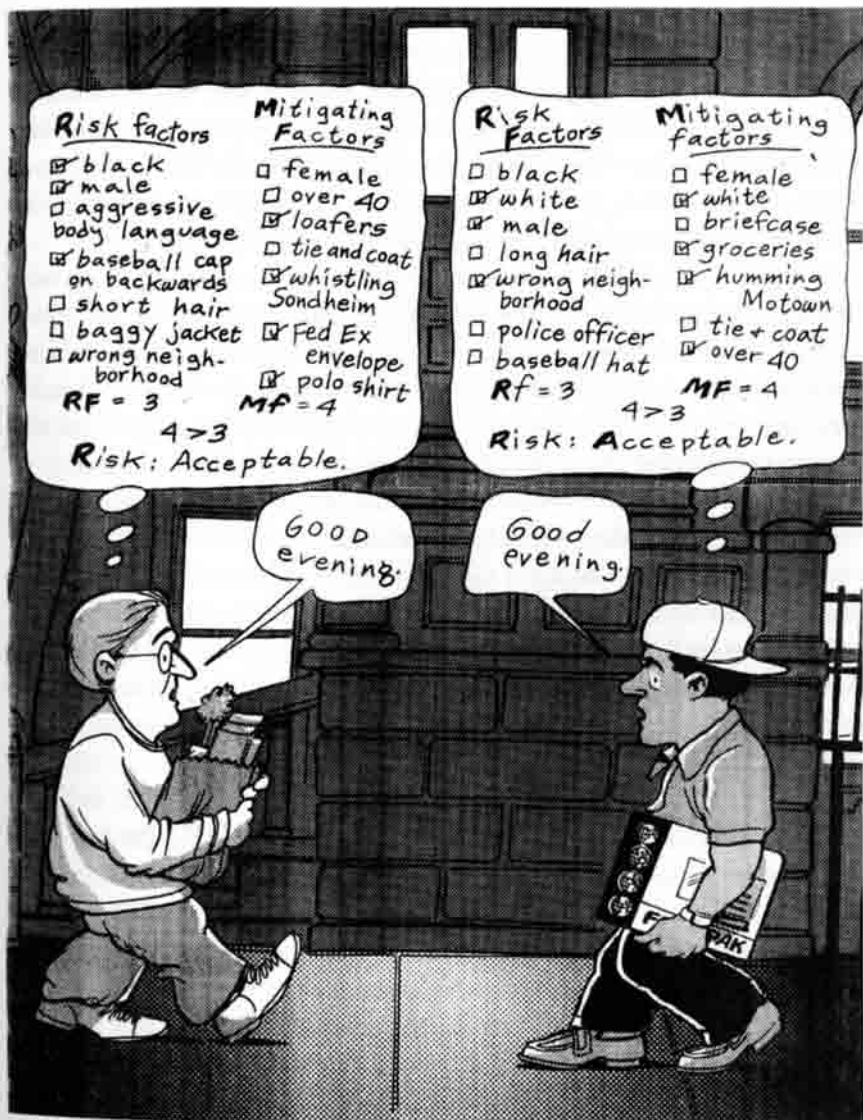 Risk factors
☑ black
☑ male
☐ aggressive
body language
☑ baseball cap
on backwards
☐ short hair
☐ baggy jacket
☐ wrong neigh-
borhood
RF = 3
Mitigating
Factors
☐ female
☐ over 40
☑ loafers
☐ tie and coat
☑ whistling
Sondheim
☑ Fed Ex
envelope
☑ polo shirt
Mf = 4
4 > 3
Risk: Acceptable.
Risk
Factors
☐ black
☑ white
☑ male
☐ long hair
☑ wrong neigh-
borhood
☐ police officer
☐ baseball hat
Rf = 3
Mitigating
factors
☐ female
☑ white
☐ briefcase
☑ groceries
☑ humming
Motown
☐ tie + coat
☑ over 40
MF = 4
4 > 3
Risk: Acceptable.
GOOD
evening.
Good
evening.
PAK